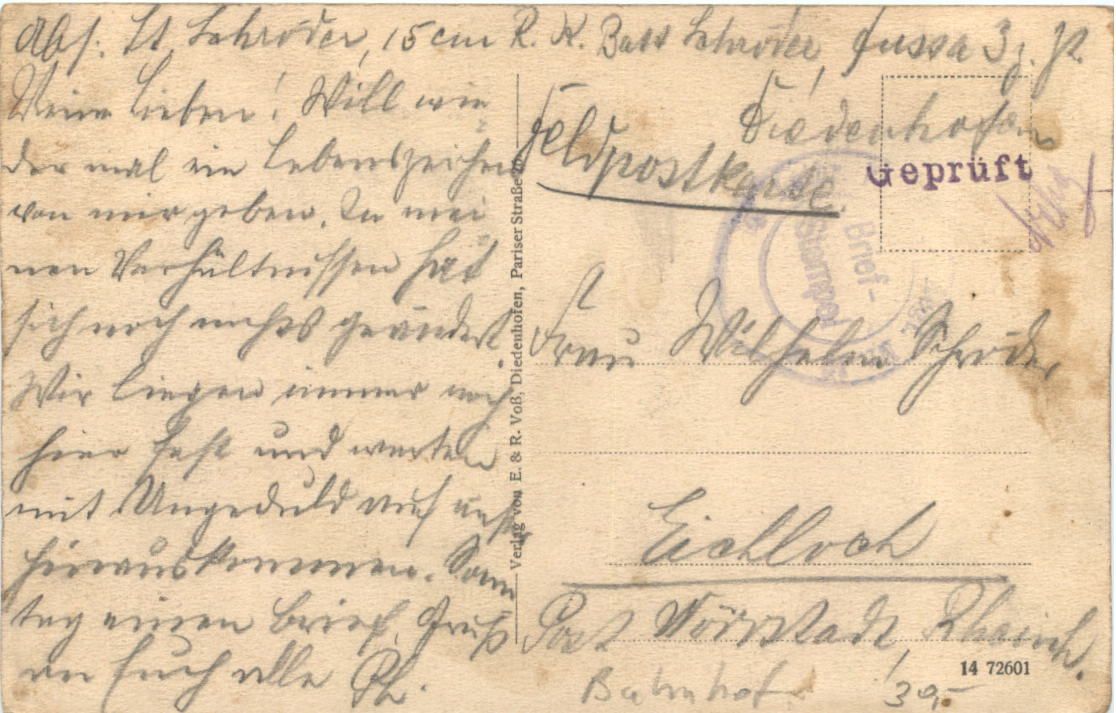 Abs: Lt. Schröder, 15 cm R. K. Batt Schröder, Fussa 3, Z.
Diedenhofen
Meine Lieben! Will wie
der mal ein Lebenszeichen
von mir geben. In mei
nen Verhältnissen hat
sich noch nichts geändert.
Wir liegen immer noch
hier fest und warten
mit Ungeduld auf unser
hinauskommen. Sonn
tag einen Brief. Gruß
an Euch alle Ph.
Verlag von E. & R. Voß, Diedenhofen, Pariser Straße
Feldpostkarte.
Geprüft
Brief-
Stempel
Frau Wilhelm Schröder
Eichloch
Post Wörrstadt, Rheinh.
14 72601
Bahnhof. 39,-